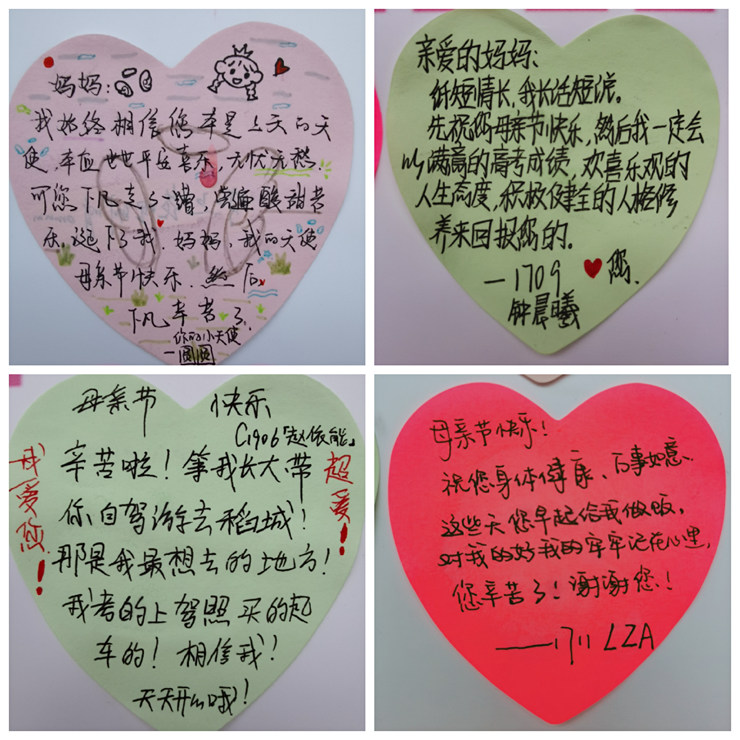 妈妈:
我始终相信您本是上天的天
使,本应世世平安喜乐,无忧无愁
可您下凡走了一朝,尝遍酸甜苦
乐,诞下了我。妈妈,我的天使
母亲节快乐.然后
下凡辛苦了.
你的小天使
—圆圆
亲爱的妈妈:
纸短情长,我长话短说。
先祝您母亲节快乐,然后我一定会
以满意的高考成绩,欢喜乐观的
人生态度,积极健全的人格修
养来回报您的。
—1709
您.
钟晨曦
母亲节 快乐
C1906「赵依能」
辛苦啦!等我长大带
你自驾游去稻城!
那是我最想去的地方!
我考的上驾照买的起
车的!相信我!
天天开心哦!
我爱您!
超爱!
母亲节快乐!
祝您身体健康、万事如意.
这些天您早起给我做饭,
对我的好我的牢牢记在心里,
您辛苦了!谢谢您!
——1711 LZA